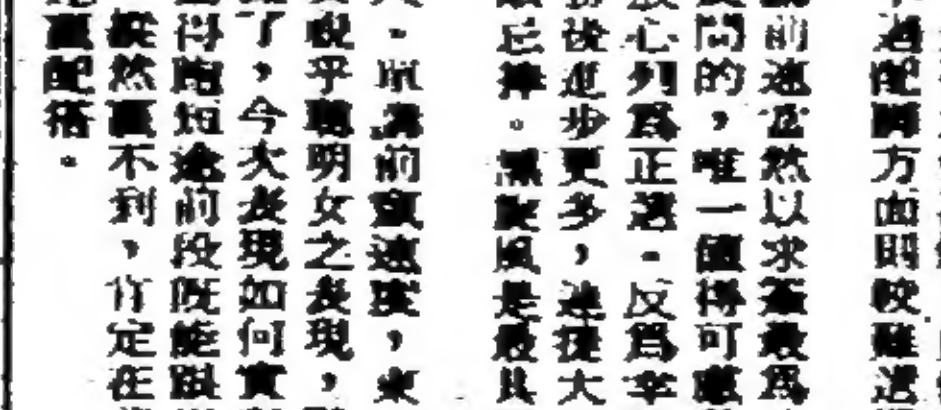 過配脚方面則較難選
前速當然以求 爲
間的，唯一值得可慮
心列爲正選．反爲幸
後進步更多，連捷大
忌 。黑旋風是最具
．前 速度，東
視乎聰明女之表現，
了，今次表現如何實
得跑短途前段既能跟
縱然贏不到，肯定在
贏配搭。